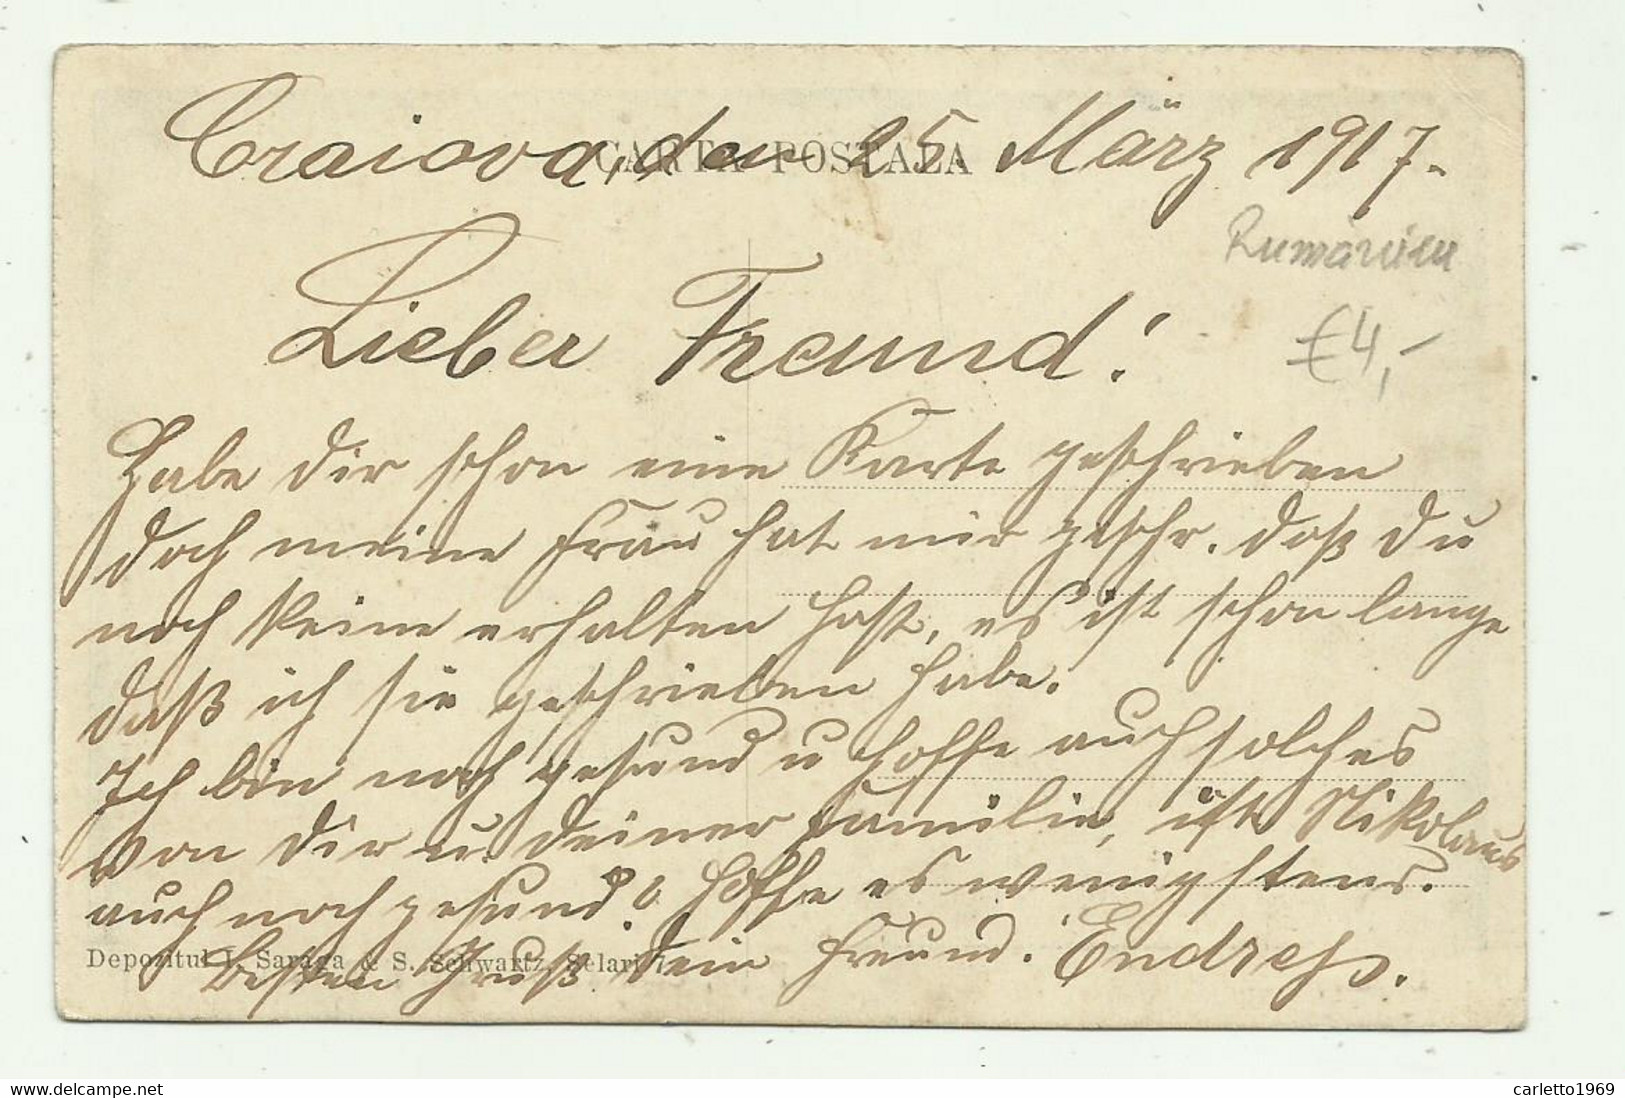 Craiova, den 25. März 1917.
CARTA POSTALA
Rumänien
Lieber Freund!
£4,-
Habe dir schon eine Karte geschrieben
doch meine Frau hat mir geschr. daß du
noch keine erhalten hast, es ist schon lange
daß ich sie geschrieben habe.
Ich bin noch gesund u hoffe auch solches
von dir u. deiner Familie, ist Nikolaus
auch noch gesund? hoffe es wenigstens.
Besten Gruß dein Freund. Endreß.
Depozitul I. Saraga & S. Schwartz, Selari 7.
delcampe.net
carletto1969